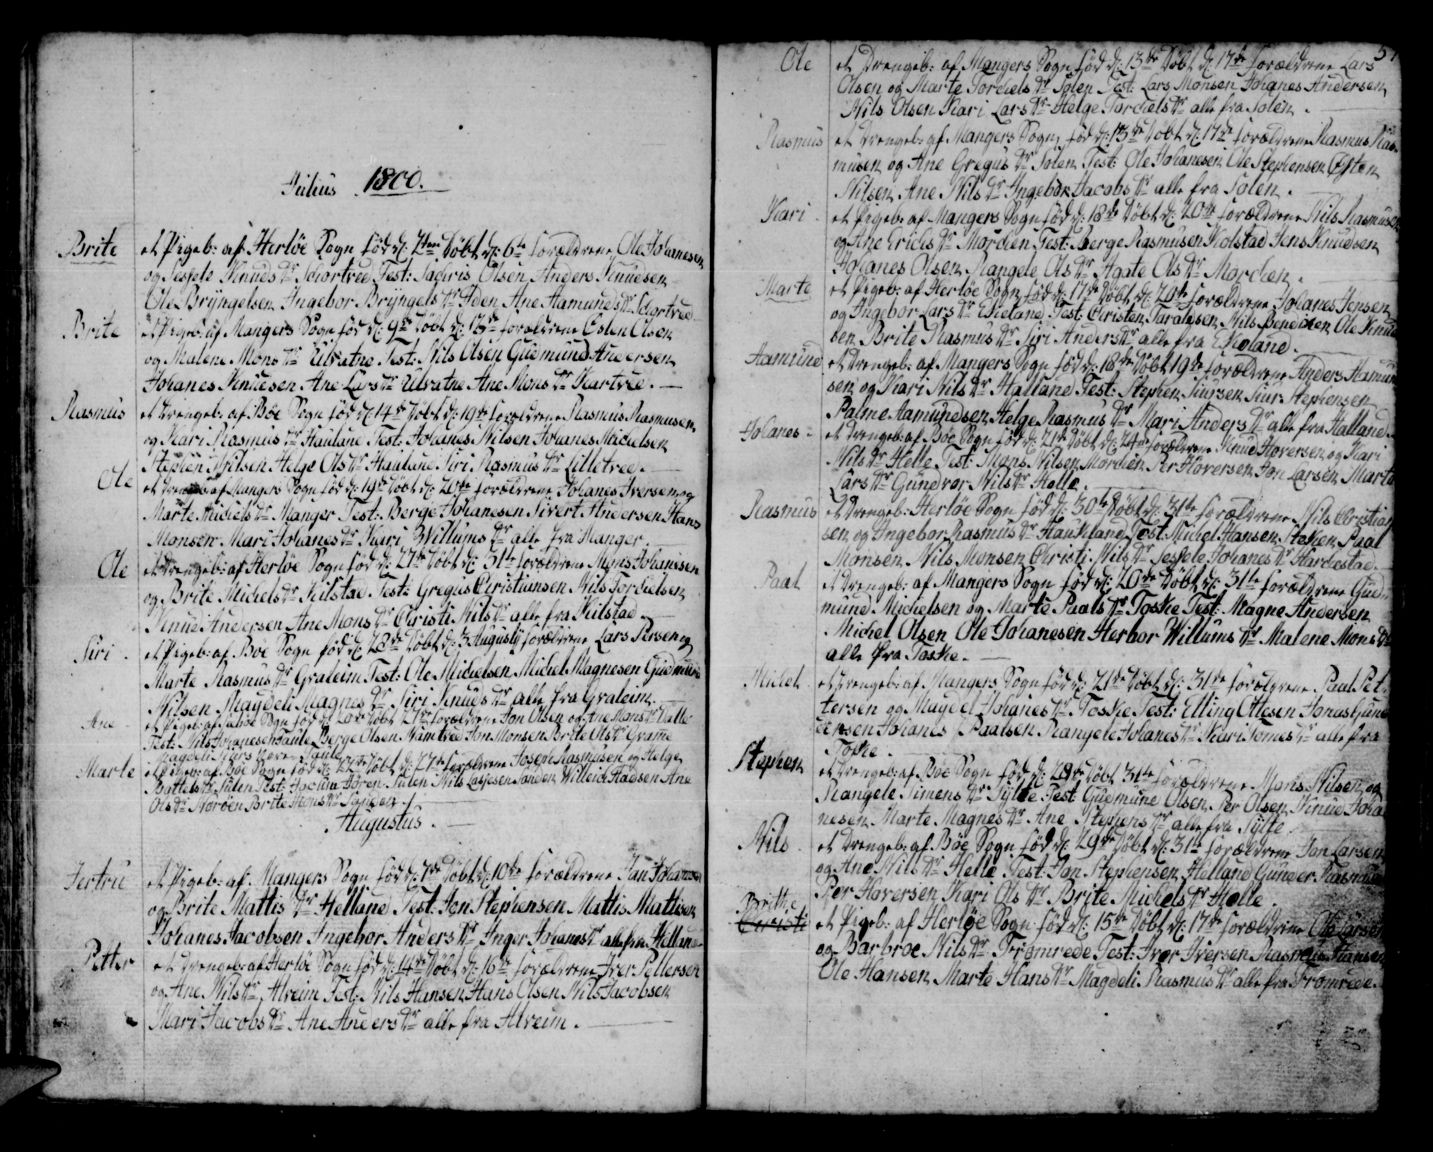 Julius 1800.
Brite et Pigeb: af Herløe Sogn fød d: 2den Døbt d: 6te forældrene Ole Johanesen
og Seffele Knuds Dr Schortved Test: Olsen Anders Knudsen
Ole Bryngelsen Ingebor Bryngels Dr Ane Aamunds Dr
Brite et Pigeb: af Mangers Sogn fød d: 9de Døbt d: 13de forældrene Østen Olsen
og Malene Mons Dr Ulvatne Test: Nils Olsen Gudmund Andersen
Johanes Knudsen Ane Lars Dr Ulvatne Ane Mons Dr Kartved.
Rasmus et Drengeb: af Bøe Sogn fød d: 14de Døbt d: 19de forældrene Rasmus Rasmusen
og Kari Rasmus Dr Hauland Test: Johanes Nilsen Johanes Michelsen
Stephen Nilsen Helge Ols Dr Hauland Siri Rasmus Dr Litletved.
Ole et Drengeb: af Mangers Sogn fød d: 19de Døbt d: 20de forældrene Johanes Iversen og
Marte Michels Dr Manger Test: Berge Johanesen Sivert Andersen Hans
Monsen Mari Johanes Dr Kari Willums Dr alle fra Manger.
Ole et Drengeb: af Herløe Sogn fød d: 27de Døbt d: 31te forældrene Mons Johanesen
og Brite Michels Dr Kilstad Test: Gregus Christiansen Nils Torkielsen
Knud Andersen Ane Mons Dr Christi Nils Dr alle fra Kilstad
Siri et Pigeb: af Bøe Sogn fød d: 28de Døbt d: 3 Augusty forældrene Lars Persen og
Marte Rasmus Dr Graleim Test: Ole Michelsen Michel Magnesen Gudmund
Nilsen Magdeli Magnes Dr Siri Knuds Dr alle fra Graleim.
Ane et Pigeb: af Sogn fød d: Døbt 27de forældrene Jon Olsen og Ane Mons Dr
Test: Nils Johanesen Berge Olsen Jon Monsen Brite Ols Dr
Magdeli
Marte et Pigeb: af Bøe Sogn fød d: Døbt d: 27de forældrene Joseph Rasmusen og Helge
Test: Nils Hadsen Ane
Ols Dr Nordøen Brite Mons Dr
Augustus.
Jertrud et Pigeb: af Mangers Sogn fød d: 7de Døbt d: 10de forældrene Jan Johanesen
og Brite Mattis Dr Helland Test: Jon Stephensen Mattis Mattisen
Johanes Jacobsen Ingebor Anders Dr Inger Johanes Dr alle fra Helland
Petter et Drengeb: af Herløe Sogn fød d: 14de Døbt d: 16de forældrene Iver Pettersen
og Ane Nils Dr Alveim Test: Nils Hansen Hans Olsen Nils Jacobsen
Mari Jacobs Dr Ane Anders Dr alle fra Alveim.
57
Ole et Drengeb: af Mangers Sogn fød d: 13de Døbt d: 17de forældrene Lars
Olsen og Marte Torkiels Dr Solen Test: Lars Monsen Johanes Andersen
Nils Olsen Kari Lars Dr Helge Torkiels Dr alle fra Solen.
Rasmus et Drengeb: af Mangers Sogn fød d: 13de Døbt d: 17de forældrene Rasmus Ras-
musen og Ane Gregus Dr Solen Test: Ole Johanesen Ole Stephensen Østen
Nilsen Ane Nils Dr Ingebor Jacobs Dr alle fra Solen.
Kari et Pigeb: af Mangers Sogn fød d: 18de Døbt d: 20de forældrene Nils Rasmusen
og Ane Erichs Dr Mordien Test: Berge Rasmusen Kolstad Jens Knudsen
Johanes Olsen Rangele Ols Dr Haate Ols Dr Mordien.
Marte et Pigeb: af Herløe Sogn fød d: 17de Døbt d: 20de forældrene Johanes Jensen
og Ingebor Lars Dr Test: Christen Nils Ole Knud
sen Brite Rasmus Dr Siri Anders Dr alle fra
Aamund et Drengeb: af Mangers Sogn fød d: 18de Døbt 19de forældrene Anders Aamun
sen og Kari Nils Dr Halland Test: Stephen Siursen Siur Stephensen
Palme Aamundsen Helge Rasmus Dr Mari Anders Dr alle fra Halland.
Johanes et Drengeb: af Bøe Sogn fød d: 21de Døbt d: 24de forældrene Knud Haversen og Kari
Nils Dr Helle Test: Mons Nilsen Mordien Per Haversen Jon Larsen Marte
Lars Dr Gundvor Nils Dr Helle.
Rasmus et Drengeb: Herløe Sogn fød d: 30te Døbt d: 31te forældrene Nils Christian
sen og Ingebor Rasmus Dr Haukland Test: Michel Hansen Paal
Monsen Nils Monsen Christi Nils Dr Seffele Johanes Dr Hardestad.
Paal et Drengeb: af Mangers Sogn fød d: 20de Døbt d: 31te forældrene Gud-
mund Michelsen og Marte Paals Dr Toske Test: Magne Andersen
Michel Olsen Ole Johanesen Herbor Willums Dr Malene Mons Dr
alle fra Toske.
Michel et Drengeb: af Mangers Sogn fød d: 21de Døbt d: 31te forældrene Paal Pet-
tersen og Magdel Johanes Dr Toske Test: Elling Ottesen Jonas Gund
Johanes Paalsen Rangele Johanes Dr Kari Dr alle fra
Toske
Stephen et Drengeb: af Bøe Sogn fød d: 28de Døbt 31te forældrene Mons Nilsen og
Rangele Simens Dr Sylte Test: Gudmund Olsen Per Olsen Knud Joha
nesen Marte Magnes Dr Ane Stephens Dr alle fra Sylte.
Nils et Drengeb: af Bøe Sogn fød d: 29de Døbt d: 31te forældrene Jon Larsen
og Ane Nils Dr Helle Test: Jon Stephensen Helland Gunder Rasmusen
Per Haversen Kari Ols Dr Brite Michels Dr Helle.
Brithe
Christi et Pigeb: af Herløe Sogn fød d: 15de Døbt d: 17de forældrene Ole Larsen
og Barbroe Nils Dr Fromrede Test: Iver Iversen Rasmus Hansen
Ole Hansen Marte Hans Dr Magdeli Rasmus Dr alle fra Fromrede.